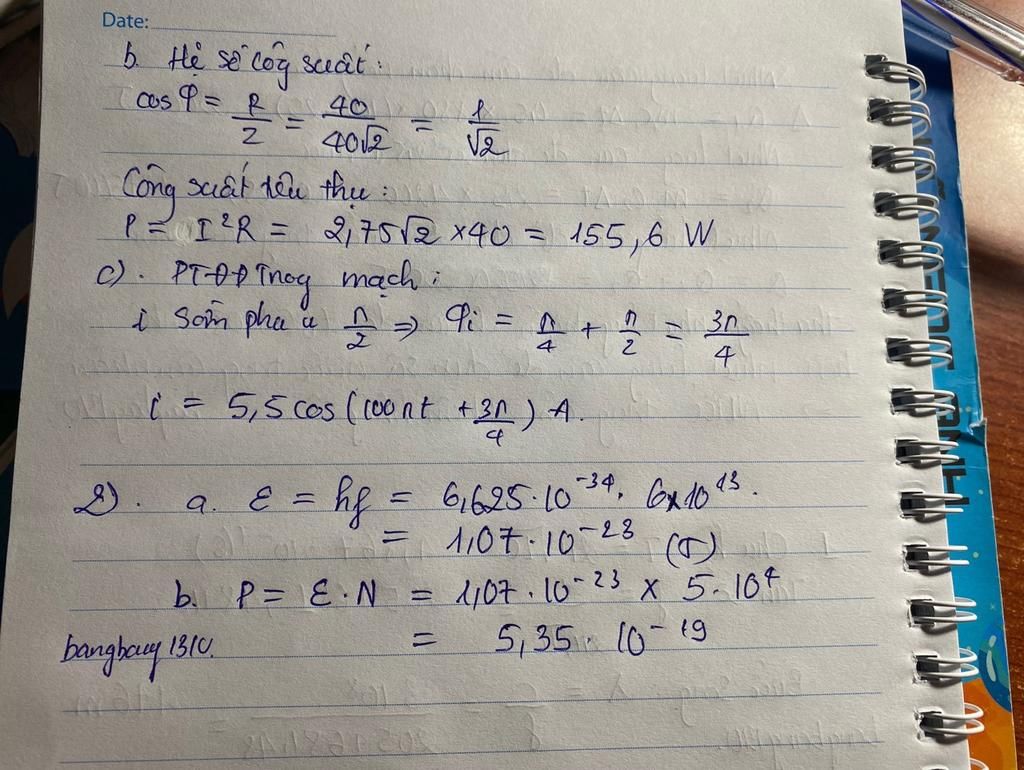 Date:
b. Hệ số công suất:
cos φ = R/Z = 40/40√2 = 1/√2
Công suất tiêu thụ:
P = I²R = 2,75√2 × 40 = 155,6 W
c). PTĐĐ Trong mạch:
i sớm pha u π/2 ⇒ φi = π/4 + π/2 = 3π/4
i = 5,5 cos(100πt + 3π/4) A.
2). a. ε = hf = 6,625.10⁻³⁴. 6x10¹³.
= 1,07.10⁻²³ (J)
b. P = ε.N = 1,07.10⁻²³ x 5.10⁴
bangbang1310. = 5,35.10⁻¹⁹